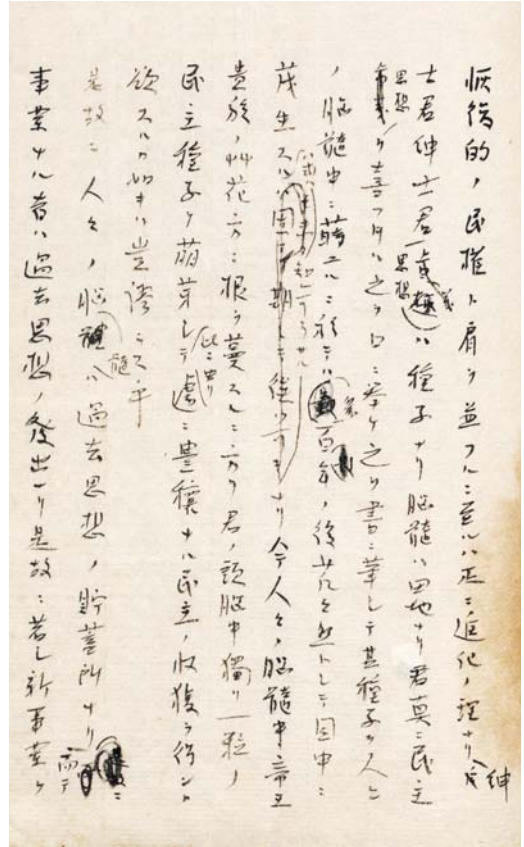 恢復的ノ民権ト肩ヲ並フルニ至ルハ正ニ進化ノ理ナリ紳
士君紳士君思想ハ種子ナリ脳髄ハ田地ナリ君真ニ民主
思想ヲ喜フトキハ之ヲ口ニ挙ケ之ヲ書ニ筆シテ其種子ヲ人々
ノ脳髄中ニ蒔ユルニ於テハ幾百年ノ後芃々然トシテ国中ニ
茂生スルハ或ハ知ル可ラサルナリ今人々ノ脳髄中帝王
貴族ノ艸花方ニ根ヲ蔓スルニ方リ君ノ頭脳中獨リ一粒ノ
民主種子ヲ萌芽シテ此ニ由リ遽ニ豊穰ナル民主ノ収穫ヲ得ント
欲スルカ如キハ豈謬ラスヤ
是故ニ人々ノ脳髄ハ過去思想ノ貯蓄所ナリ而テ
事業ナル者ハ過去思想ノ發出ナリ是故ニ若シ新事業ヲ